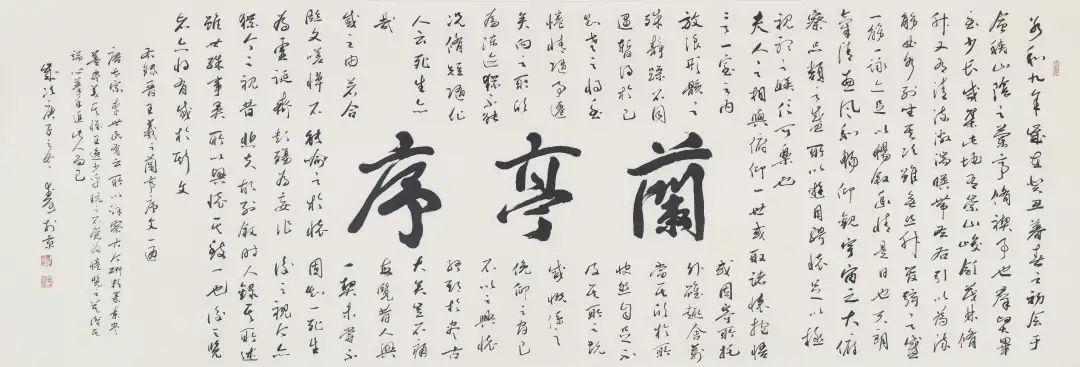 永和九年歲在癸丑暮春之初會于
會稽山陰之蘭亭脩禊事也群賢畢
至少長咸集此地有崇山峻領茂林脩
竹又有清流激湍暎帶左右引以為流
觴曲水列坐其次雖無絲竹管弦之盛
一觴一詠亦足以暢敘幽情是日也天朗
氣清惠風和暢仰觀宇宙之大俯
察品類之盛所以遊目騁懷足以極
視聽之娛信可樂也
夫人之相與俯仰一世或取諸懷抱悟
言一室之內
或因寄所託
放浪形骸之
外雖趣舍萬
殊靜躁不同
當其欣於所
遇暫得於己
快然自足不
知老之將至
及其所之既
惓情隨事遷
感慨係之
矣向之所欣
俛仰之間已
為陳迹猶不能
不以之興懷
況脩短隨化
終期於盡古
人云死生亦
大矣豈不痛
哉
每覽昔人興
感之由若合
一契未嘗不
蘭亭序
臨文嗟悼不能喻之於懷固知一死生
為虛誕齊彭殤為妄作後之視今亦
猶今之視昔悲夫故列敘時人錄其所述
雖世殊事異所以興懷其致一也後之覽
者亦將有感於斯文
右錄晉王羲之蘭亭序文一通
唐太宗李世民有云所以詳察古今研精篆素盡
善盡美其惟王逸少乎玩之不覺為倦覽之莫識其
端心慕手追此人而已
歲次庚子之冬於京